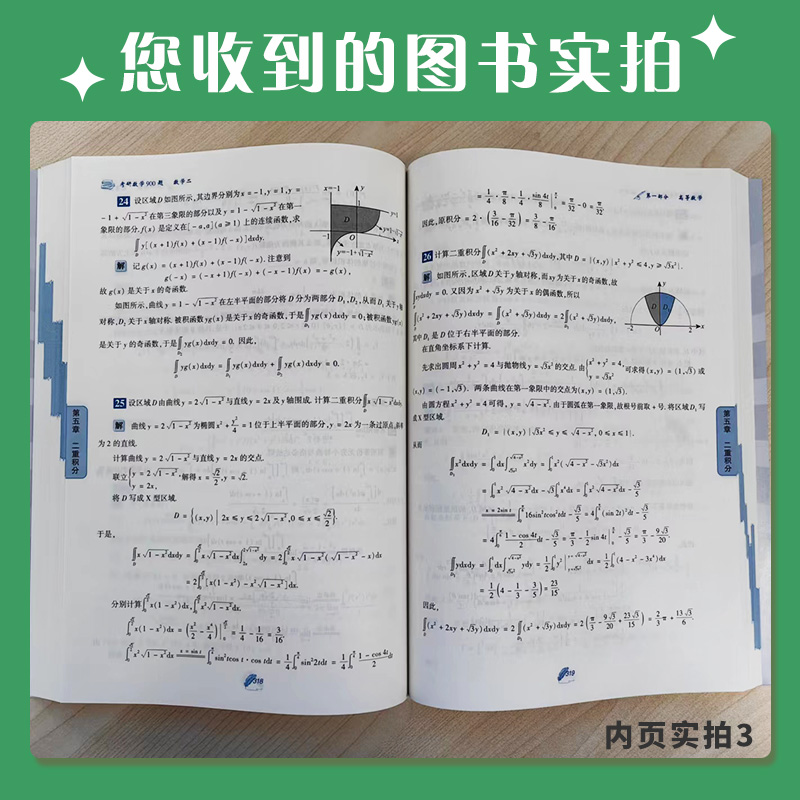 您收到的图书实拍
考研数学900题 数学二
24 设区域D如图所示,其边界分别为x=-1,y=1,y=
-1+√(1-x²)在第三象限的部分以及y=1-√(1-x²)在第一
象限的部分.f(x)是定义在[-a,a](a≥1)上的连续函数,求
∬_D y[(x+1)f(x)+(x-1)f(-x)]dxdy.
x=-1 y
y=1
D
-1 O x
y=-1+√(1-x²)
解 记g(x)=(x+1)f(x)+(x-1)f(-x).注意到
g(-x)=(-x+1)f(-x)+(-x-1)f(x)=-g(x),
故g(x)是关于x的奇函数.
是关于y的奇函数,于是∬ yg(x)dxdy=0.因此,
∬_D yg(x)dxdy=∬_D₁ yg(x)dxdy+∬_D₂ yg(x)dxdy=0.
25 设区域D由曲线y=2√(1-x²)与直线y=2x及y轴围成.计算二重积分∬_D x√(1-x²)dxdy.
解 曲线y=2√(1-x²)为椭圆x²+y²/4=1位于上半平面的部分,y=2x为一条过原点,斜率
为2的直线.
计算曲线y=2√(1-x²)与直线y=2x的交点.
联立{y=2√(1-x²), y=2x, 解得x=√2/2,y=√2.
将D写成X型区域.
D={(x,y)|2x≤y≤2√(1-x²),0≤x≤√2/2}.
于是,
∬_D x√(1-x²)dxdy=∫₀^(√2/2) x√(1-x²)dx∫_(2x)^(2√(1-x²)) dy=2∫₀^(√2/2) x√(1-x²)(√(1-x²)-x)dx
=2∫₀^(√2/2) [x(1-x²)-x²√(1-x²)]dx.
分别计算∫₀^(√2/2) x(1-x²)dx,∫₀^(√2/2) x²√(1-x²)dx.
∫₀^(√2/2) x(1-x²)dx=(x²/2-x⁴/4)|₀^(√2/2)=1/4-1/16=3/16.
∫₀^(√2/2) x²√(1-x²)dx x=sin t ∫₀^(π/4) sin²tcos t·cos tdt=1/4∫₀^(π/4) sin²2tdt=1/4∫₀^(π/4) (1-cos 4t)/2 dt
318
第五章 二重积分
第一部分 高等数学
=1/4·π/8-1/4·sin4t/8|₀^(π/4)=π/32-0=π/32.
因此,原积分=2·(3/16-π/32)=3/8-π/16.
26 计算二重积分∬_D(x²+2xy+√3y)dxdy,其中D={(x,y)|x²+y²≤4,y≥√3x²}.
解 如图所示,区域D关于y轴对称,而xy为关于x的奇函数,故
∬_D xydxdy=0.又因为x²+√3y为关于x的偶函数,所以
∬_D(x²+2xy+√3y)dxdy=∬_D(x²+√3y)dxdy=2∬_D₁(x²+√3y)dxdy,
其中D₁是D位于右半平面的部分.
y
D D₁
-2 O 2 x
在直角坐标系下计算.
先求出圆周x²+y²=4与抛物线y=√3x²的交点.由{x²+y²=4, y=√3x² 可求得(x,y)=(1,√3)或
(x,y)=(-1,√3).两条曲线在第一象限中的交点为(x,y)=(1,√3).
由圆方程x²+y²=4可得,y=√(4-x²).由于圆弧在第一象限,故根号前取+号.将区域D₁写
成X型区域.
D₁={(x,y)|√3x²≤y≤√(4-x²),0≤x≤1}.
从而
∬_D₁ x²dxdy=∫₀¹dx∫_(√3x²)^(√(4-x²)) x²dy=∫₀¹ x²(√(4-x²)-√3x²)dx
=∫₀¹ x²√(4-x²)dx-√3∫₀¹ x⁴dx=∫₀¹ x²√(4-x²)dx-√3/5
x=2sin t ∫₀^(π/6) 16sin²tcos²tdt-√3/5=4∫₀^(π/6)(sin 2t)²dt-√3/5
=4∫₀^(π/6) (1-cos 4t)/2 dt-√3/5=π/3-1/2 sin4t|₀^(π/6)-√3/5=π/3-9√3/20.
∬_D₁ ydxdy=∫₀¹dx∫_(√3x²)^(√(4-x²)) ydy=1/2∫₀¹ y²|_(y=√3x²)^(y=√(4-x²)) dx=1/2∫₀¹(4-x²-3x⁴)dx
=1/2(4-1/3-3/5)=23/15.
因此,
∬_D(x²+2xy+√3y)dxdy=2∬_D₁(x²+√3y)dxdy=2(π/3-9√3/20+23√3/15)=2/3π+13√3/6.
319
第五章 二重积分
内页实拍3